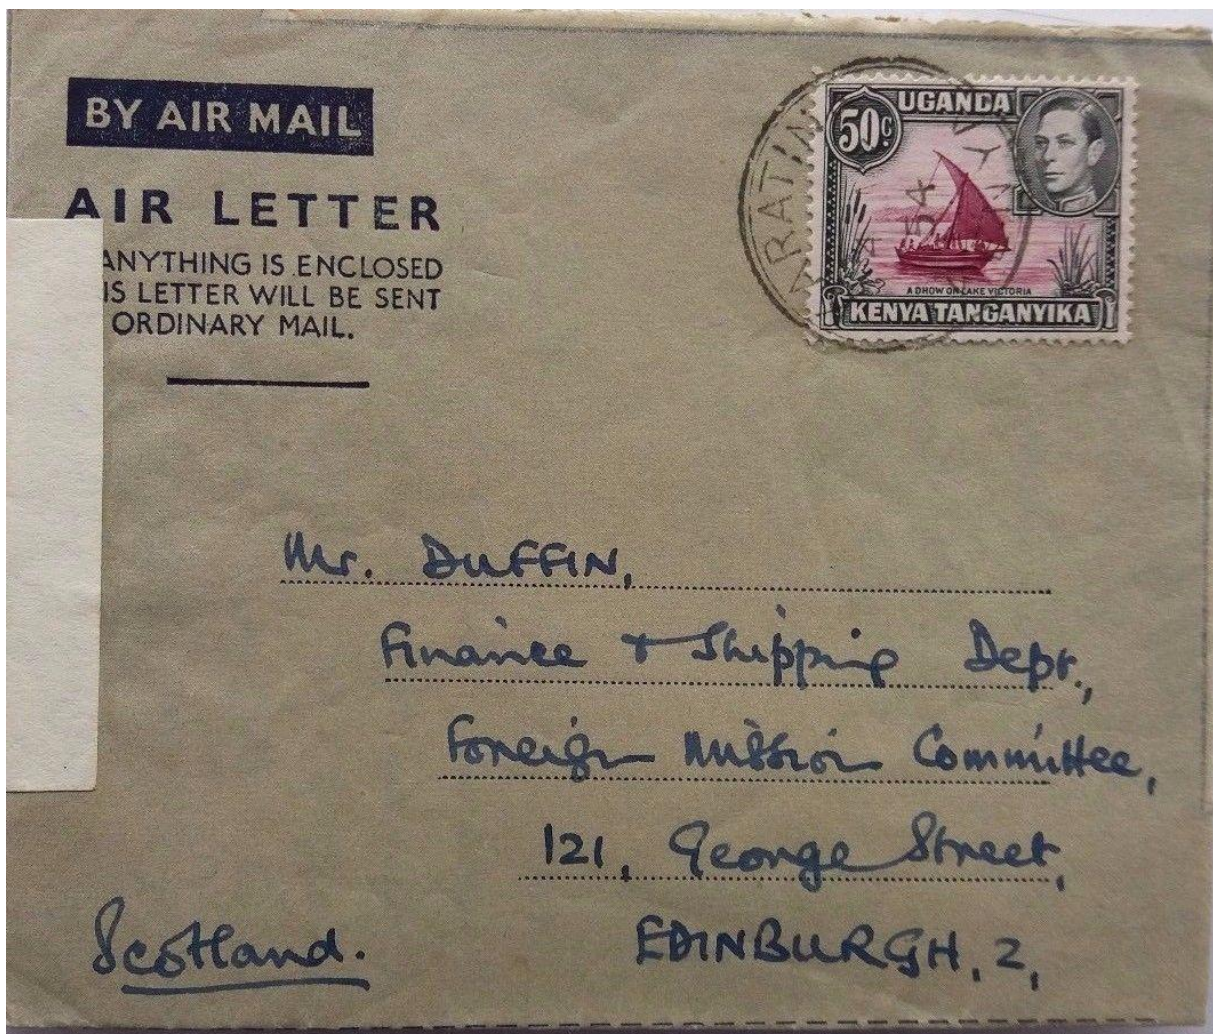 BY AIR MAIL
AIR LETTER
ANYTHING IS ENCLOSED
IS LETTER WILL BE SENT
ORDINARY MAIL.
UGANDA
50c
54
A DHOW ON LAKE VICTORIA
KENYA TANGANYIKA
Mr. DUFFIN,
Finance + Shipping Dept.,
Foreign Mission Committee,
121, George Street,
EDINBURGH, 2,
Scotland.